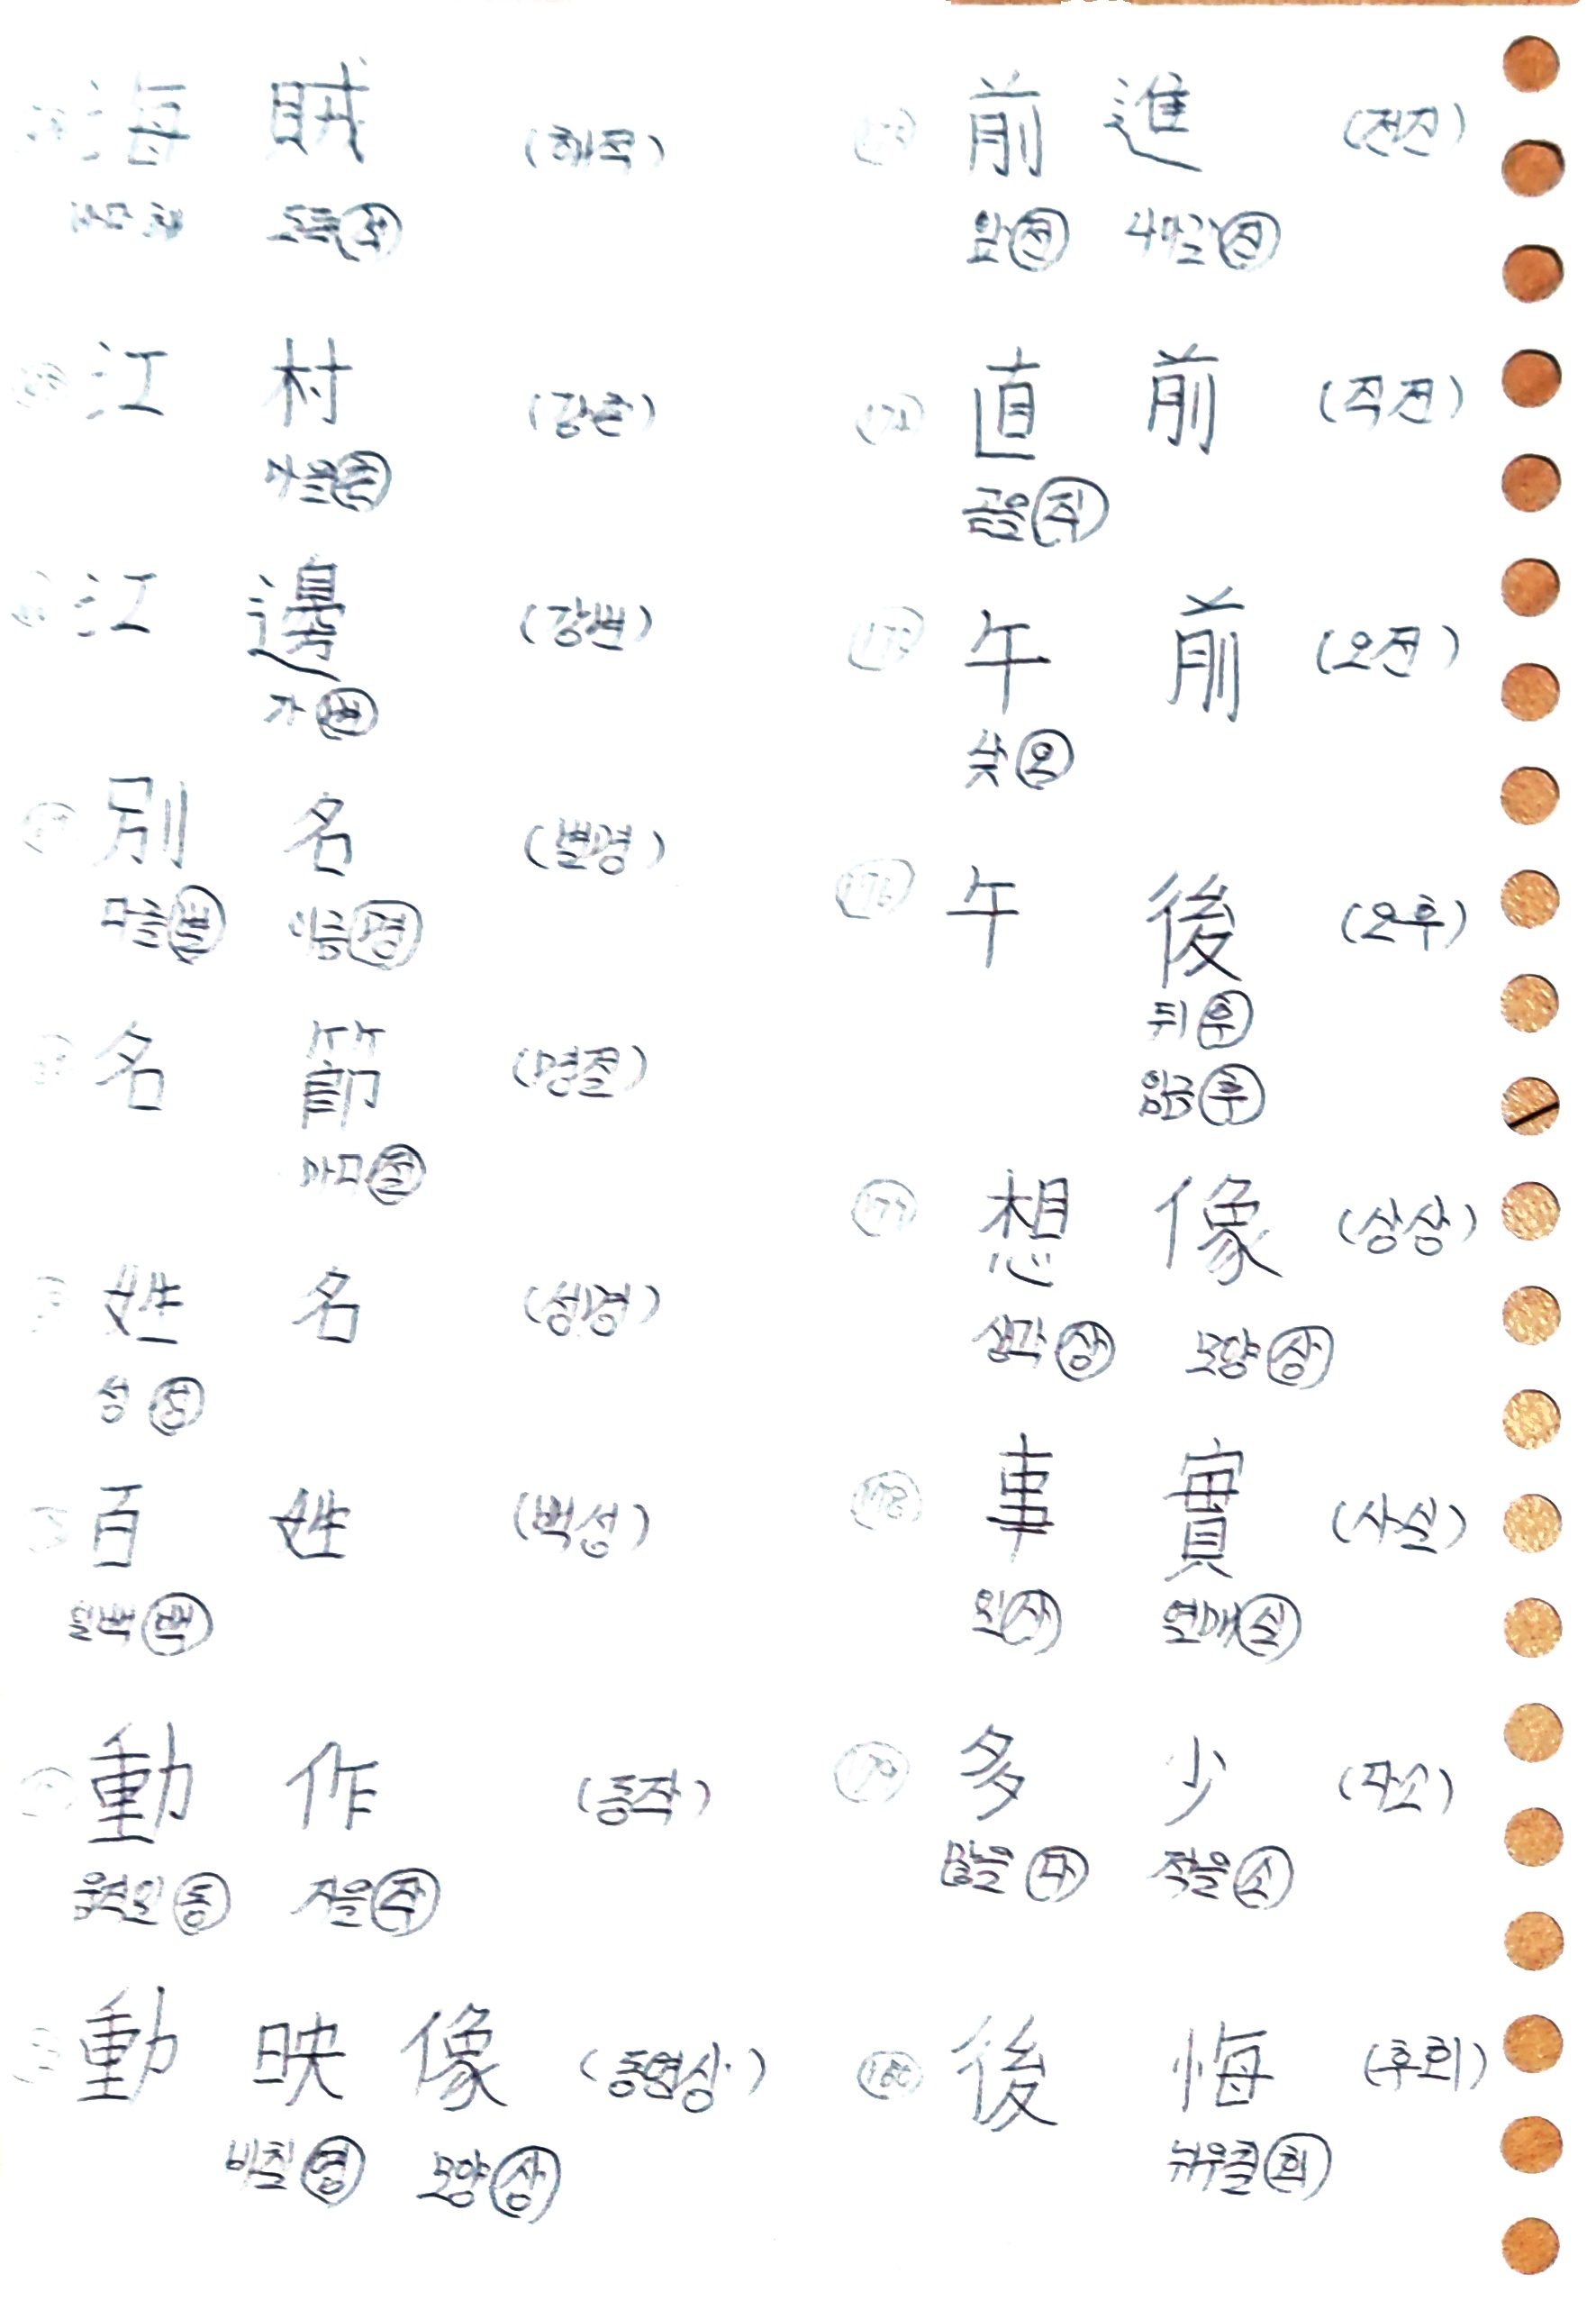 海 賊 (해적)
바다 해 도둑 적
江 村 (강촌)
마을 촌
江 邊 (강변)
가 변
別 名 (별명)
다를 별 이름 명
名 節 (명절)
마디 절
姓 名 (성명)
성 성
百 姓 (백성)
일백 백
動 作 (동작)
움직일 동 지을 작
動 映 像 (동영상)
비칠 영 모양 상
前 進 (전진)
앞 전 나아갈 진
174 直 前 (직전)
곧을 직
175 午 前 (오전)
낮 오
176 午 後 (오후)
뒤 후
임금 후
177 想 像 (상상)
생각 상 모양 상
178 事 實 (사실)
일 사 열매 실
179 多 少 (다소)
많을 다 적을 소
180 後 悔 (후회)
뉘우칠 회